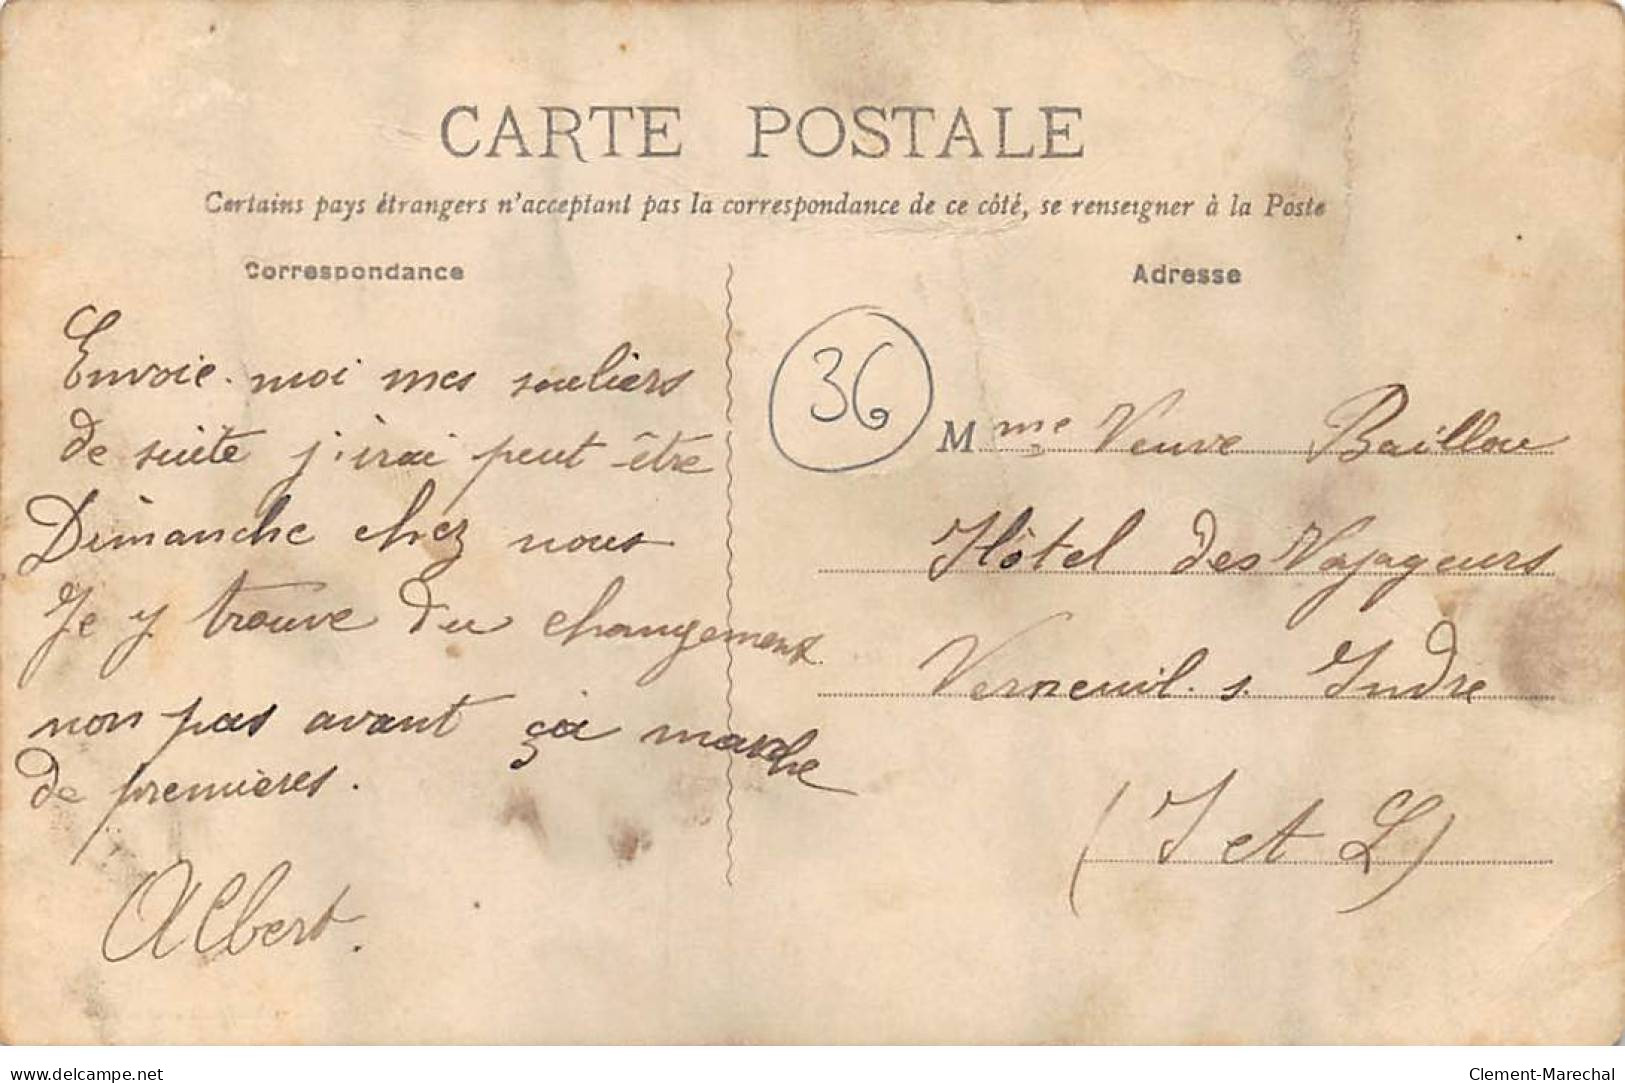 CARTE POSTALE
Certains pays étrangers n'acceptant pas la correspondance de ce côté, se renseigner à la Poste
Correspondance
Envoie-moi mes souliers
de suite j'irai peut-être
Dimanche chez nous
Je y trouve du changement
non pas avant ça marche
de premières.
Albert.
Adresse
36
Mme Veuve Baillou
Hôtel des Voyageurs
Verneuil s. Indre
(I et L)
www.delcampe.net
Clement-Marechal